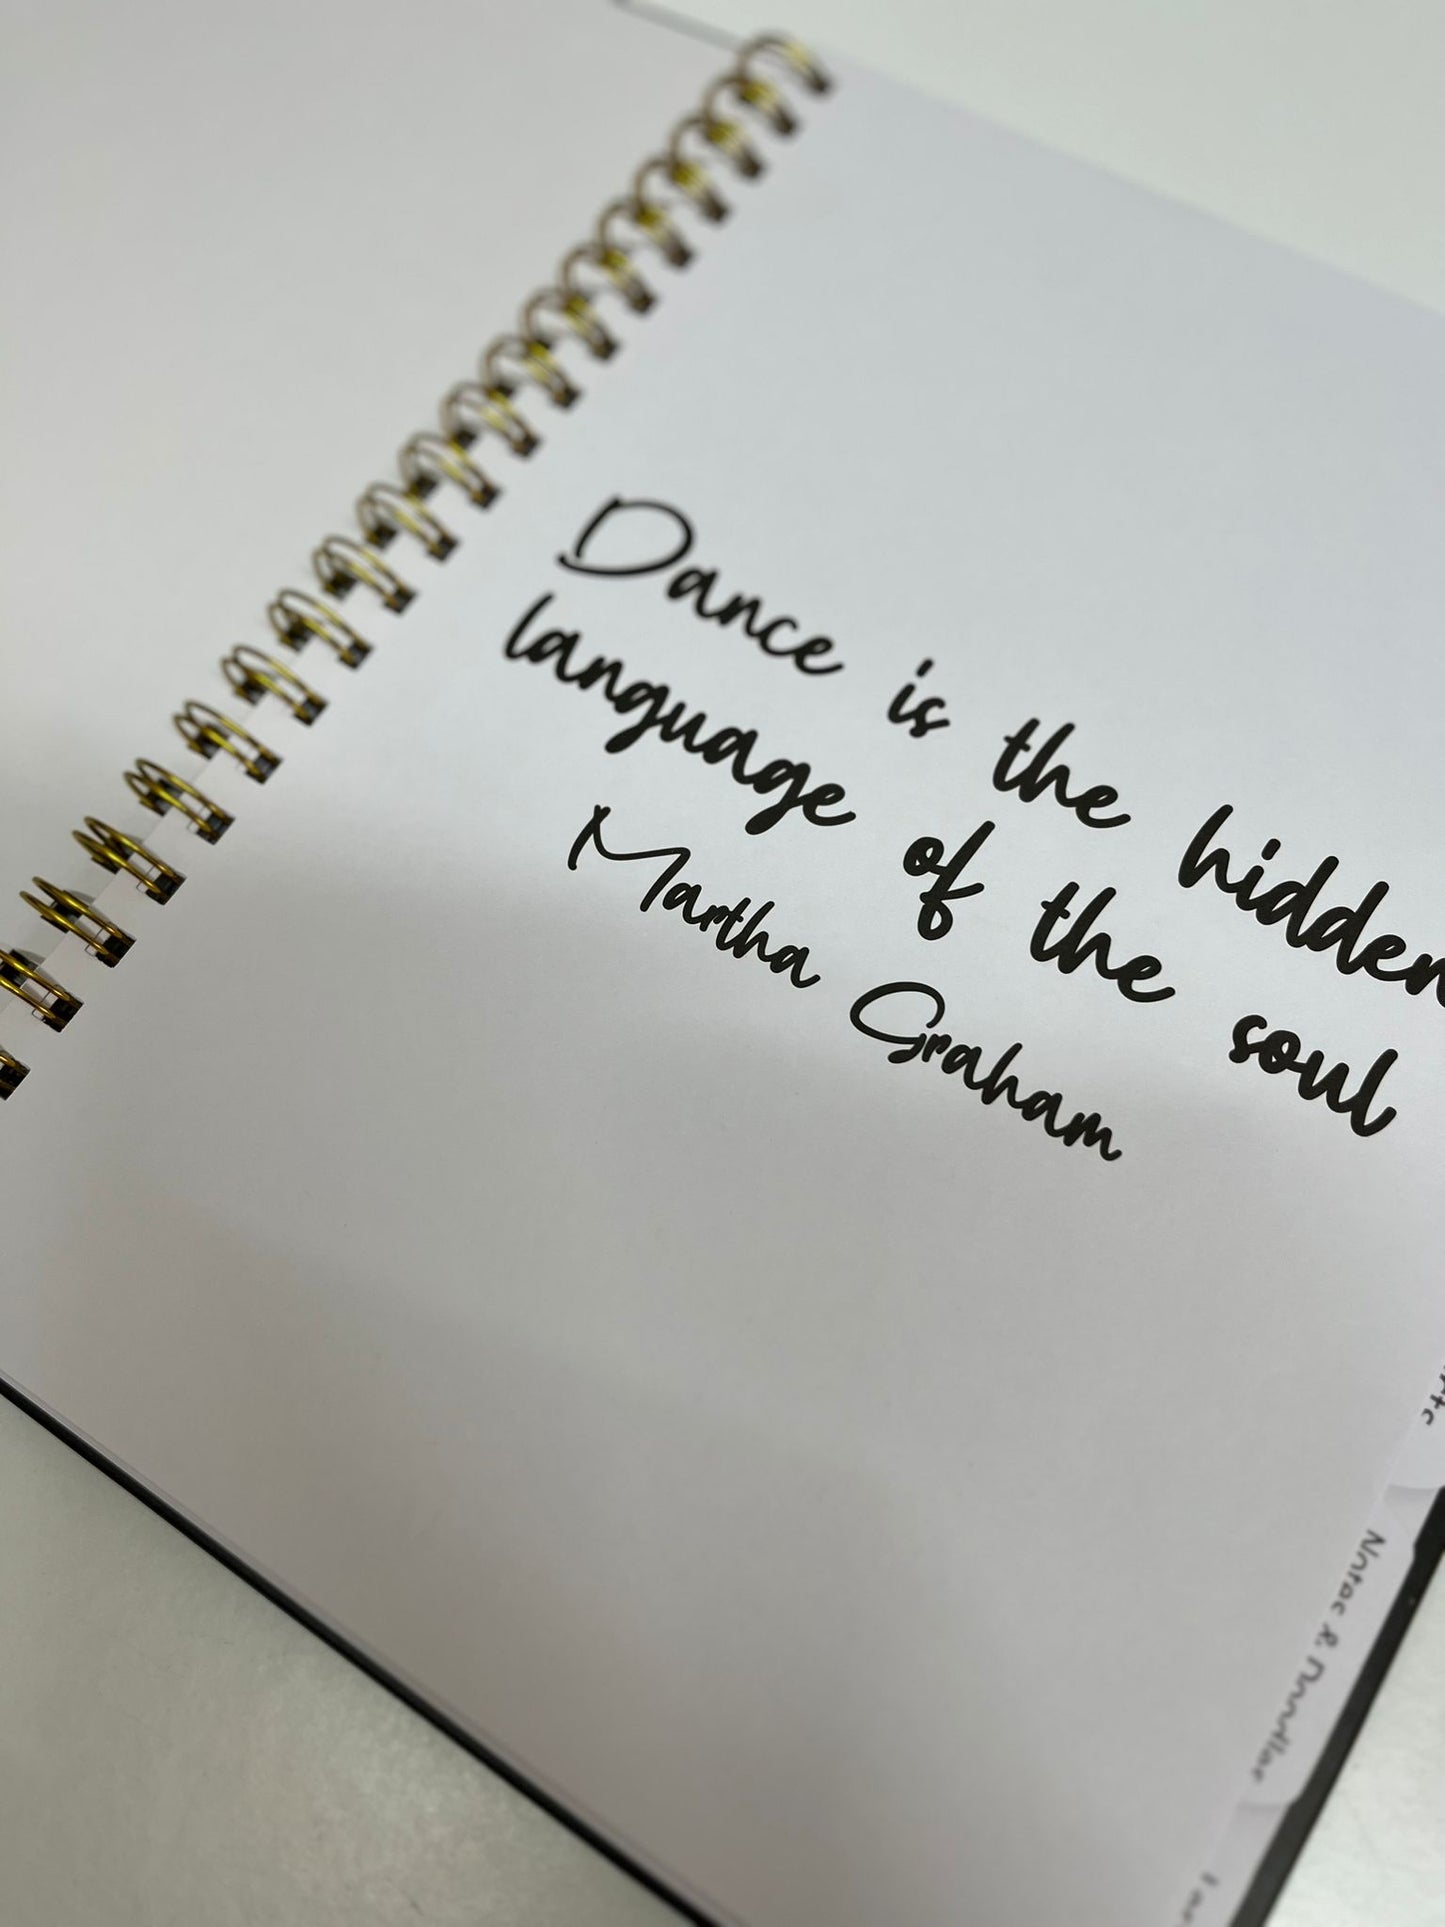 Dance is the hidden
language of the soul
Martha Graham
Notes & Doodles